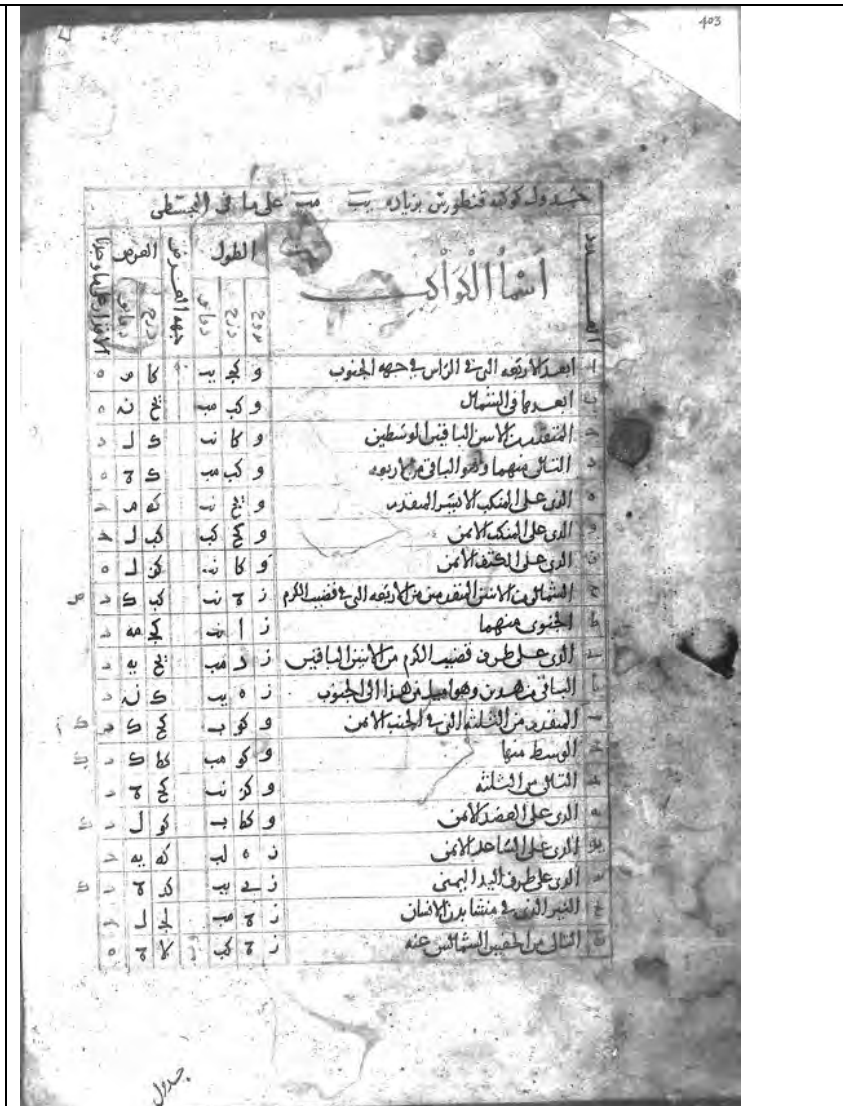 403
جدول كوكبه قنطورس بزياده يب مب على ما فى المجسطى
العدد اسماء الكواكب الطول جهه العرض العرض
بروج درج دقايق درج دقايق
ا ابعد الاربعه التى فى الراس فى جهه الجنوب و كج يب كا م ه
ب ابعدها فى الشمال و كب مب يح ن ه
ج المتقدم من الاثنين الباقيين الوسطين و كا نب ك ل د
د التالى منهما وهو الباقى من الاربعه و كب مب ك ه
ه الذى على المنكب الايسر المتقدم و يح نب كه م
و الذى على المنكب الايمن و كح كب كب ل
ز الذى على الكتف الايمن و كا نب كز ل ه
ح الشمالى من الاثنين المتقدمين من الاربعه التى فى قضيب الكرم ز نب كب ك د
ط الجنوبى منهما ز ا نب كج مه د
ى الذى على طرف قضيب الكرم من الاثنين الباقيين ز د مب يح يه د
يا الباقى من هذين وهو اميل من هذا الى الجنوب ز ه يب ك ن د
يب المتقدم من الثلثه التى فى الجنب الايمن و كو يب كح ك د
يج الوسط منها و كو مب كط ك د
يد التالى من الثلثه و كز نب كح د
يه الذى على العضد الايمن و كط يب كو ل د
يو الذى على الساعد الايمن ز ه لب كه يه د
يز الذى على طرف اليد اليمنى ز ى يب كد د
يح النير الذى فى منشا بدن الانسان ز مب لج ل
يط التالى من الخفيين الشماليين عنه ز كب لا ه
جدول